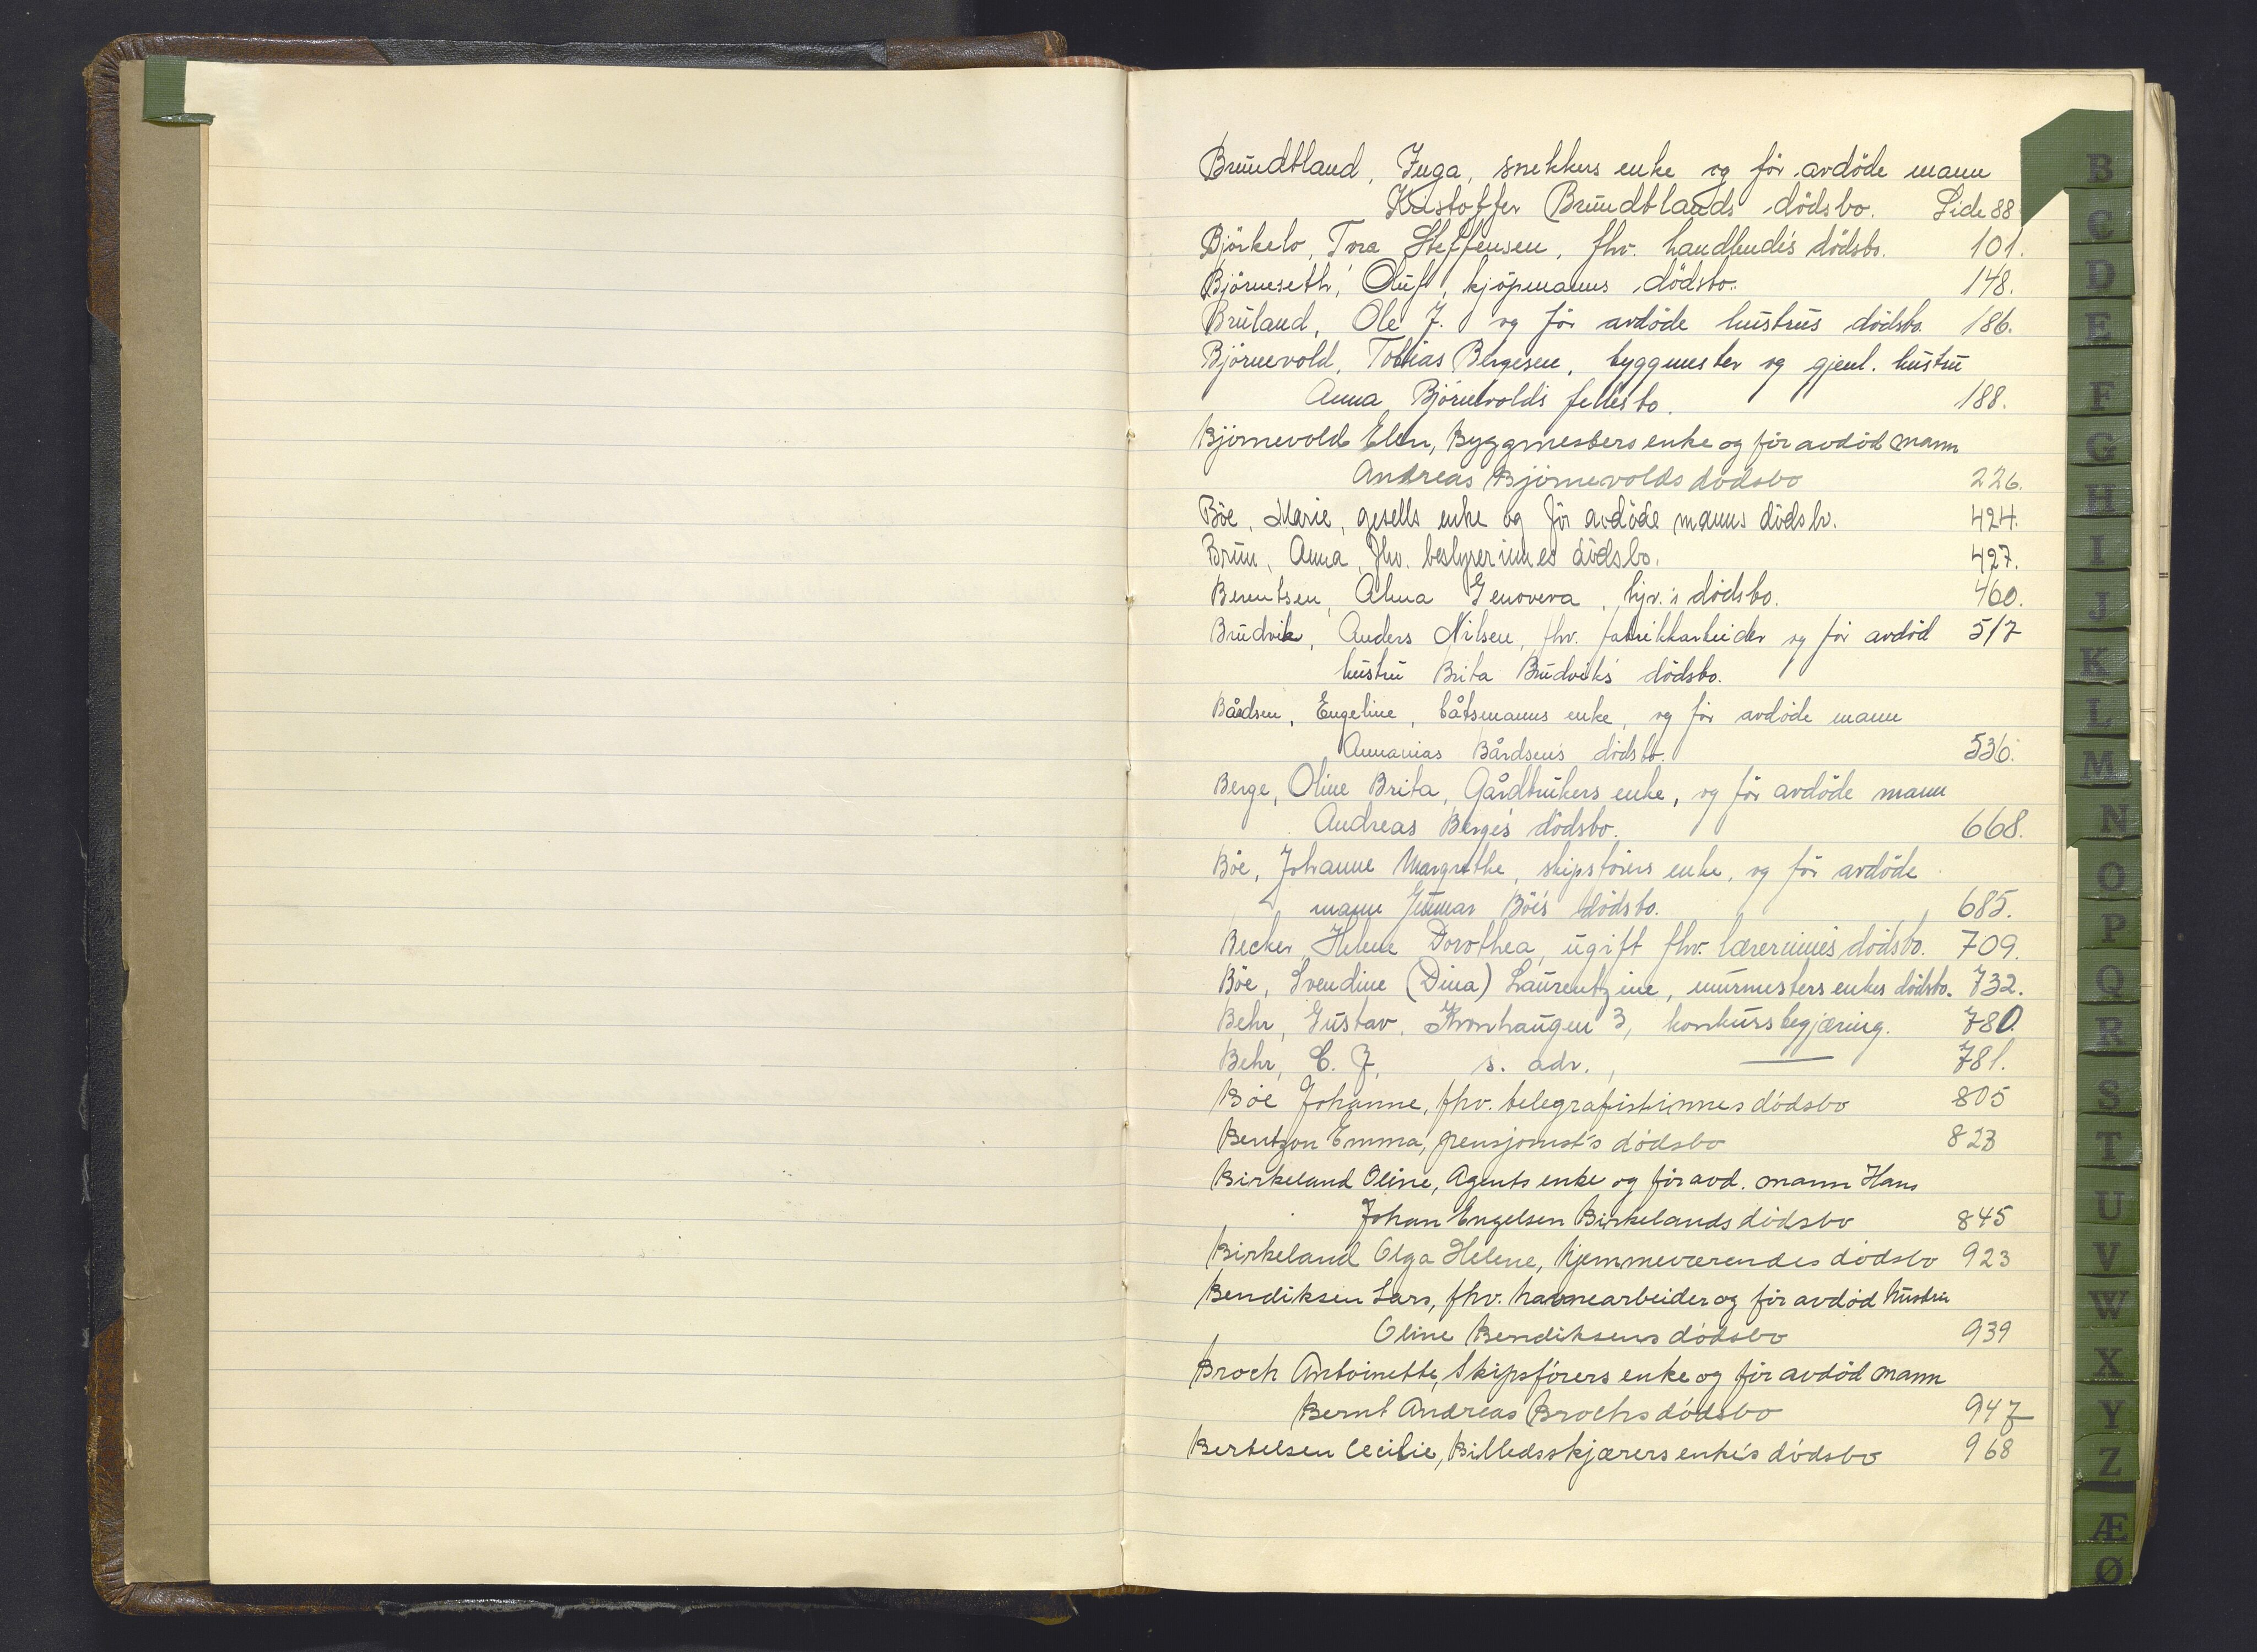 Brundtland, Inga, snekkers enke og før avdöde mann
Kristoffer Brundtlands dödsbo. Side 88
Björkelo, Tora Steffensen, fhv. handlende's dödsbo. 101.
Björneseth, Oluf, kjöpmanns dödsbo. 148.
Bruland, Ole J. og för avdöde hustrus dödsbo. 186.
Björnevold, Tobias Bergesen, byggmester og gjenl. hustru
Anna Björnevold's fellesbo. 188.
Björnevold Elen, Byggmesters enke og för avdöd mann
Andreas Björnevolds dödsbo 226.
Böe, Marie, gesells enke og för avdöde manns dödsbo. 424.
Brun, Anna, fhv. bestyrerinnes dödsbo. 427.
Berentsen, Alma Genoveva, hjv.'s dödsbo. 460.
Brudvik, Anders Nilsen, fhv. fabrikkarbeider og för avdöd 517
hustru Brita Brudvik's dödsbo.
Bårdsen, Engeline, båtsmanns enke, og för avdöde mann
Annanias Bårdsen's dödsbo. 536.
Berge, Oline Brita, Gårdbrukers enke, og för avdöde mann
Andreas Berge's dödsbo. 668.
Böe, Johanne Margrethe, skipsförers enke, og för avdöde
mann Gunnar Böe's dödsbo. 685.
Becker, Helene Dorothea, ugift fhv. lærerinne's dödsbo. 709.
Böe, Svendine (Dina) Laurentzine, murmesters enkes dödsbo. 732.
Behr, Gustav, Kronhaugen 3, konkursbegjæring. 780.
Behr, C. J., s. adr., — 781.
Böe Johanne, fhv. telegrafistinnes dödsbo 805
Bentzon Emma, pensjonist's dödsbo 823
Birkeland Oline, Agents enke og för avd. mann Hans
Johan Engelsen Birkelands dödsbo 845
Birkeland Olga Helene, hjemmeværendes dödsbo 923
Bendiksen Lars, fhv. havnearbeider og för avdöd hustru
Oline Bendiksens dödsbo 939
Broch Antoinette, Skipsförers enke og för avdöd mann
Bernt Andreas Brochs dödsbo 947
Bertelsen Cecilie, Billedsskjærers enke's dödsbo 968
B
C
D
E
F
G
H
I
J
K
L
M
N
O
P
Q
R
S
T
U
V
W
X
Y
Z
Æ
Ø